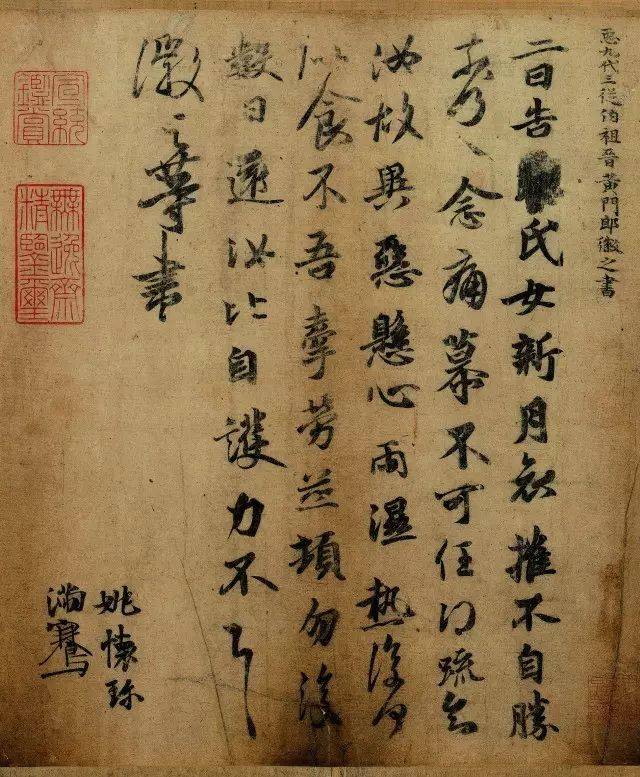 臣九代三從伯祖晉黃門郎徽之書
二日告氏女新月哀摧不自勝
奈何〻念痛慕不可任得疏知
汝故異惡懸心雨濕熱復何
似食不吾牽勞並頓勿復
數日還汝比自護力不具
徽之等書
姚懷珍
滿騫
宣統
鑑賞
無逸齋
精鑒璽